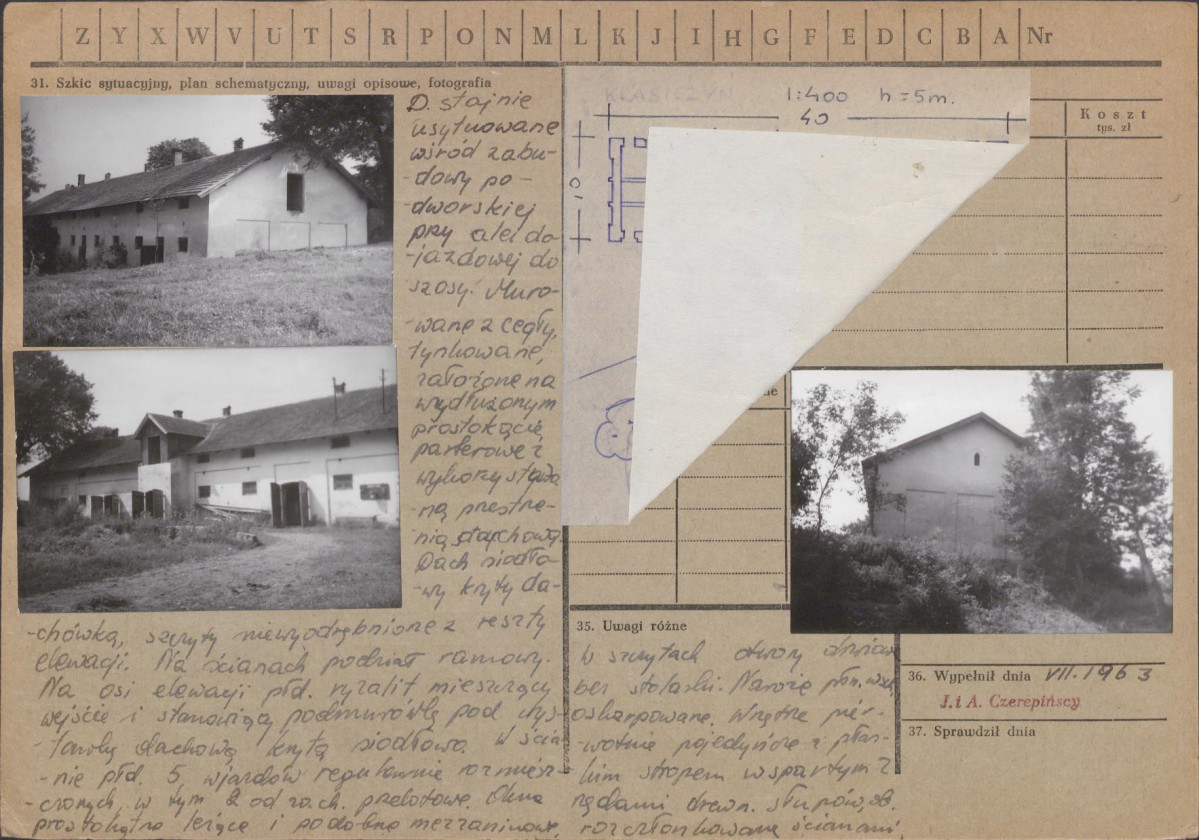 Z Y X W V U T S R P O N M L K J I H G F E D C B A Nr
31. Szkic sytuacyjny, plan schematyczny, uwagi opisowe, fotografia
D. stajnie
usytuowane
wśród zabu-
-dowy po-
-dworskiej
przy alei do
-jazdowej do
szosy. Muro-
-wane z cegły,
tynkowane,
założone na
wydłużonym
prostokącie,
parterowe z
wysoką
-ną
Dach siodło
-wy kryty da-
-chówką, szczyty niewyodrębnione z reszty
elewacji. Na ścianach podział ramowy.
Na osi elewacji płd. ryzalit mieszczący
wejście i stanowiący podmurówkę pod wys-
-tawkę dachową krytą siodłowo. W ścia-
-nie płd. 5 wjazdów regularnie rozmiesz-
-czonych, w tym 2 od zach. przelotowe. Okna
prostokątne leżące i podobne mezzaninowe,
KLASICZYN
1:400 h=5m.
40
10
Koszt
tys. zł
ne
35. Uwagi różne
W szczytach otwory drzwiow
bez stolarki. Naroże płn. wsch
oskarpowane. Wnętrze pier-
-wotnie pojedyńcze z płas-
-kim stropem wspartym 2
rzędami drewn. słupów, ob.
rozczłonkowane ścianami
36. Wypełnił dnia VII.1963
J. i A. Czerepińscy
37. Sprawdził dnia